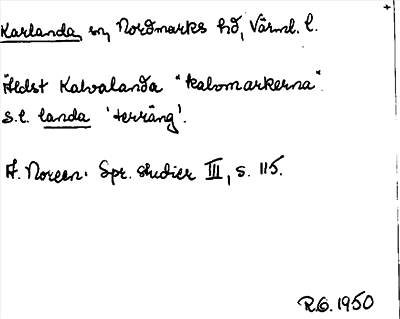 Karlanda sn, Nordmarks hd, Värml. l.
Äldst Kalvalanda "kalvmarkerna".
S. l. landa 'terräng'.
A. Noreen. Spr. studier III, s. 115.
R.G. 1950